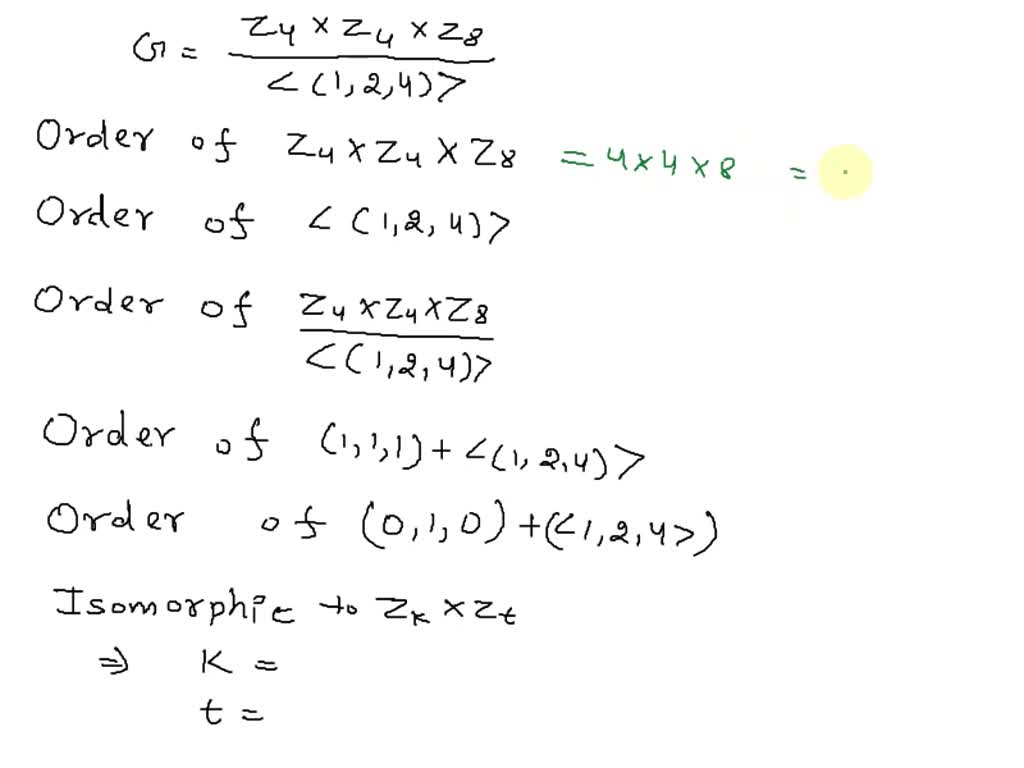 G = Z4 × Z4 × Z8 / <(1,2,4)>
Order of Z4 × Z4 × Z8 = 4 × 4 × 8 =
Order of <(1,2,4)>
Order of Z4 × Z4 × Z8 / <(1,2,4)>
Order of (1,1,1) + <(1,2,4)>
Order of (0,1,0) + (<1,2,4>)
Isomorphic to Zk × Zt
⇒ K =
t =